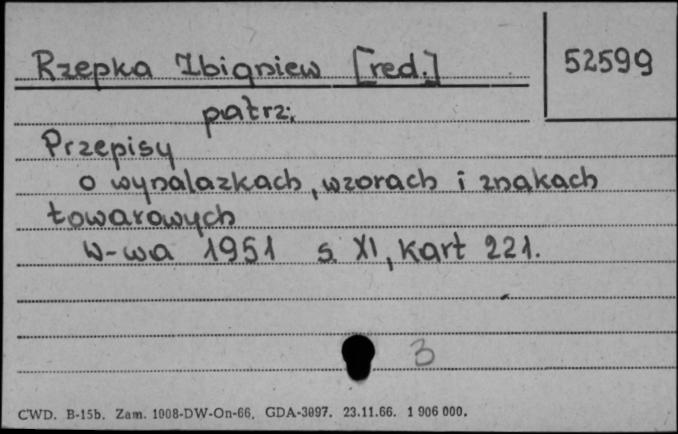 Rzepka Zbigniew [red.]
52599
patrz:
Przepisy
o wynalazkach, wzorach i znakach
towarowych
W-wa 1951 s. XI, kart 221.
3
CWD. B-15b. Zam. 1008-DW-On-66. GDA-3097. 23.11.66. 1 906 000.